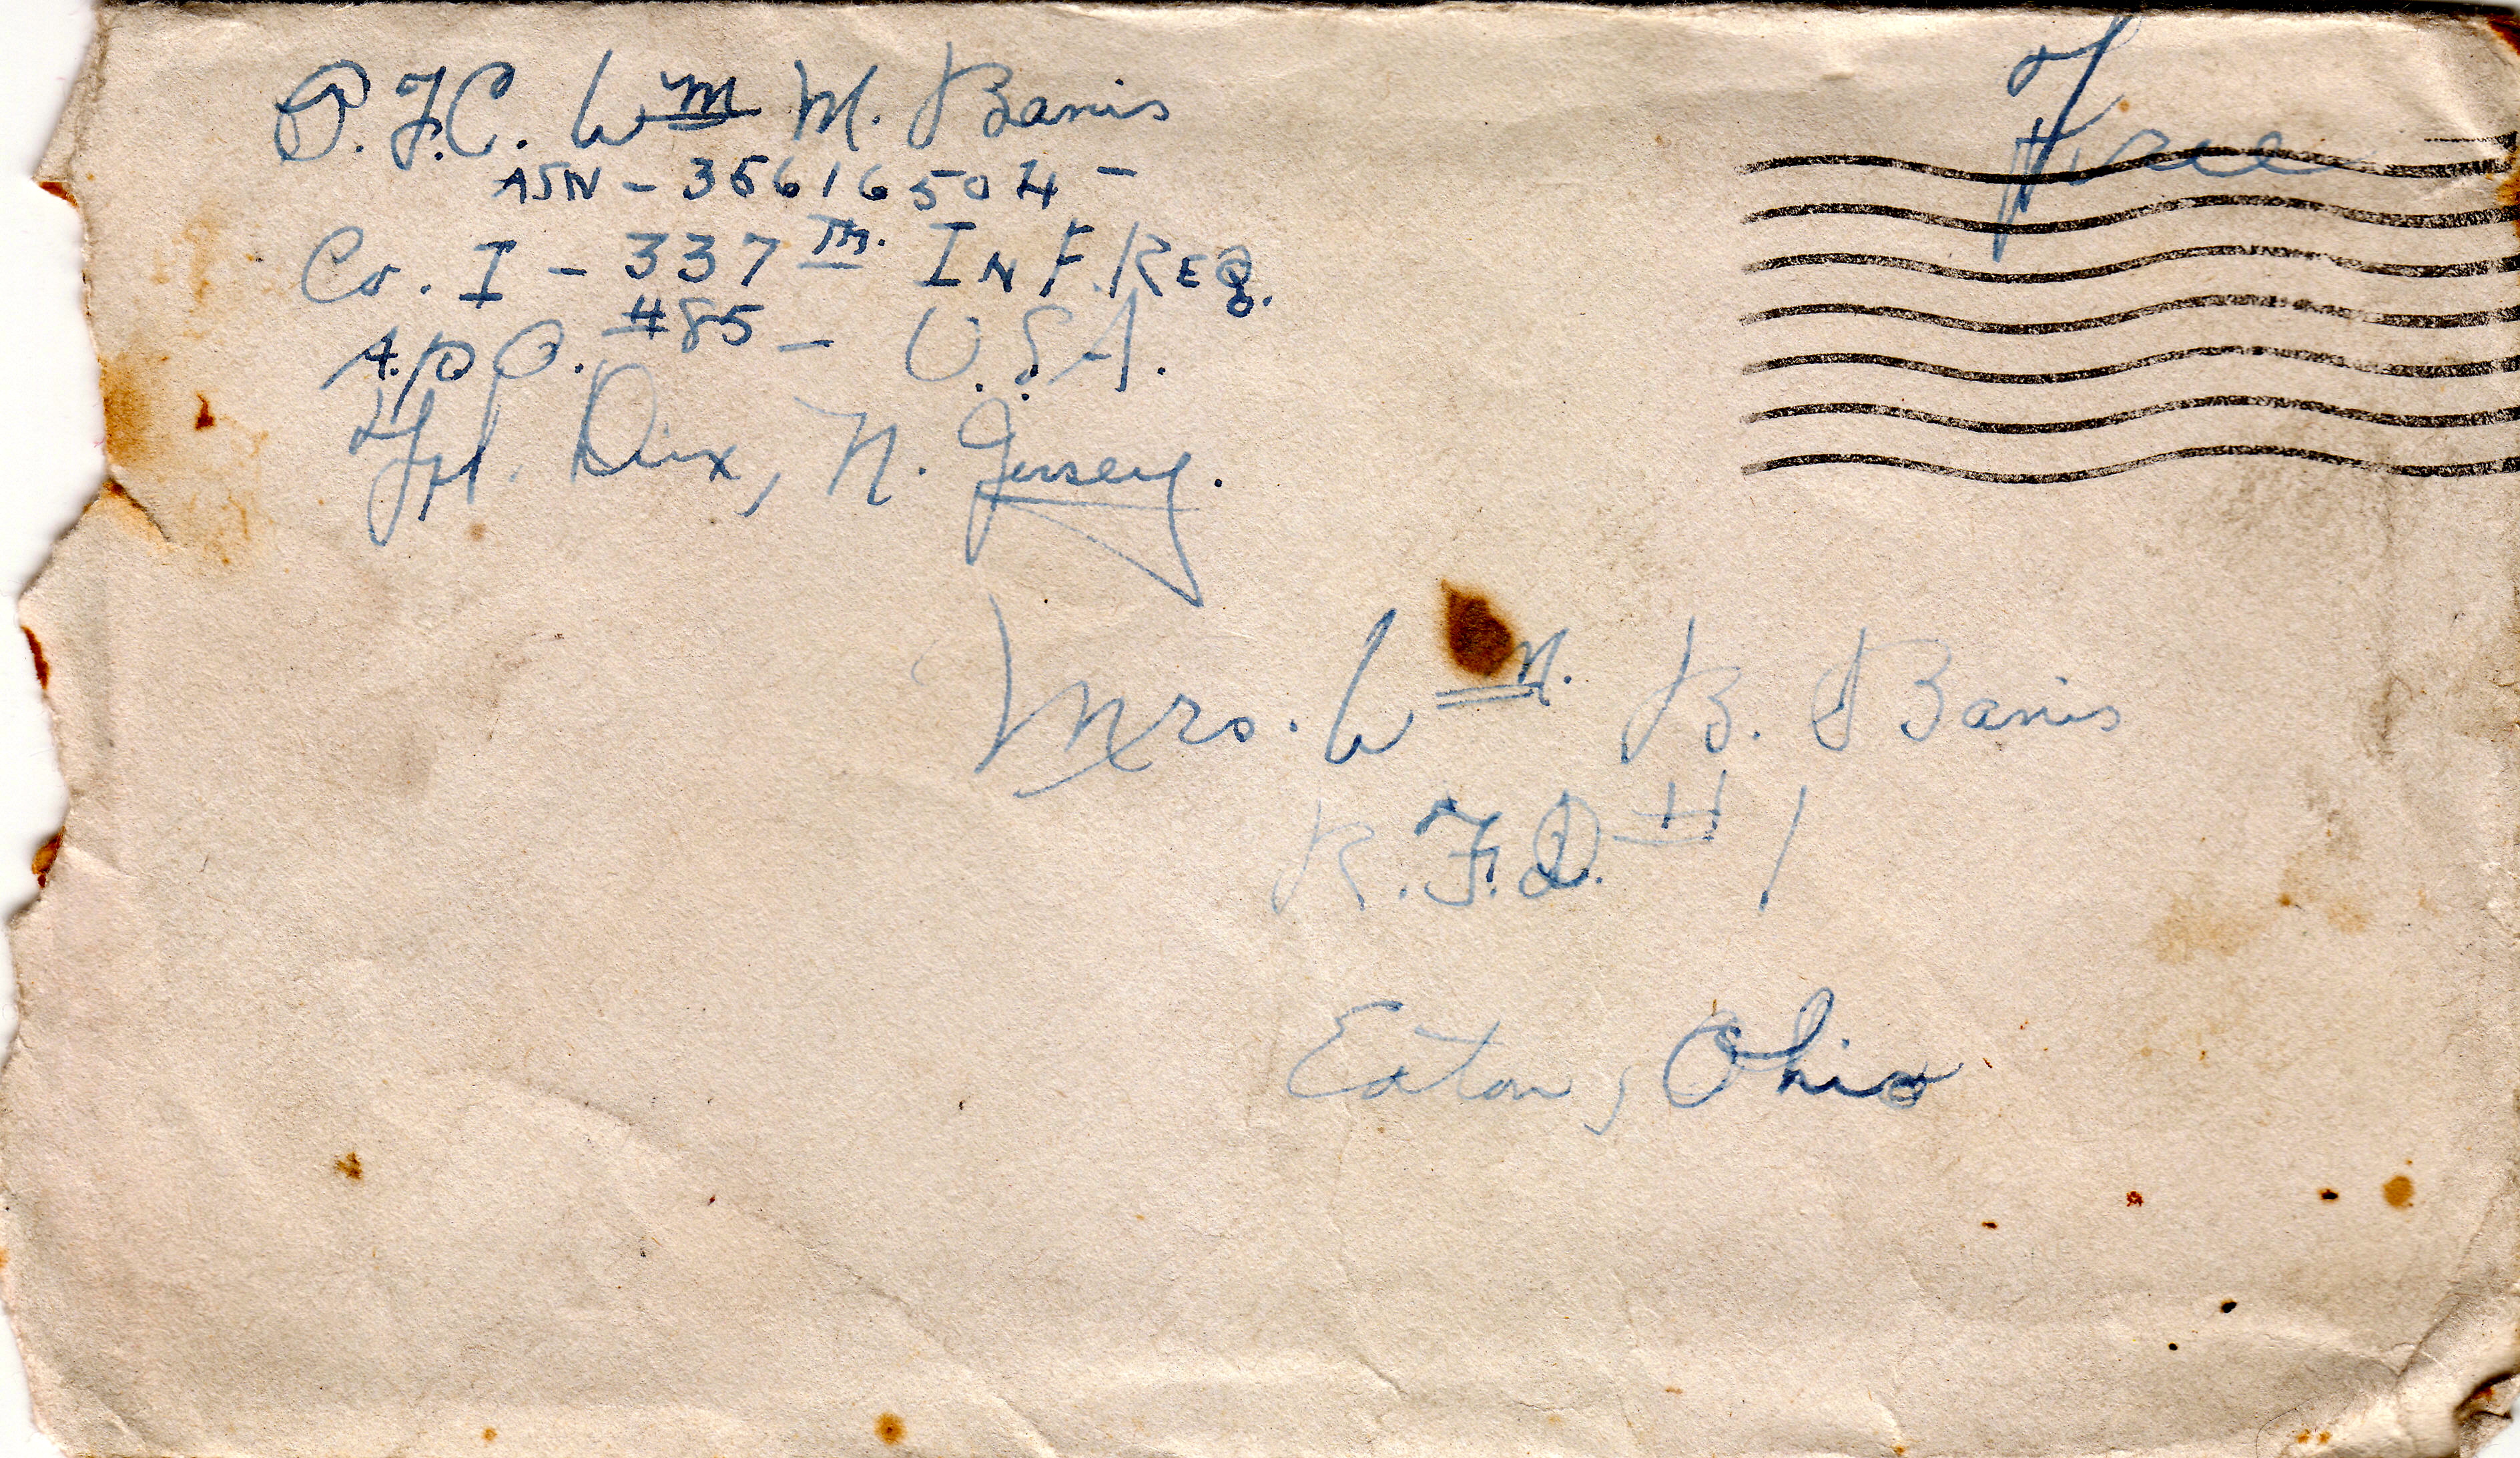 P.F.C. Wm M. Banis
ASN - 35616504 -
Co. I - 337th INF. REG.
A.P.O. #85 - U.S.A.
Ft. Dix, N. Jersey.
Free
Mrs. Wm. B. Banis
R.F.D. #1
Eaton, Ohio